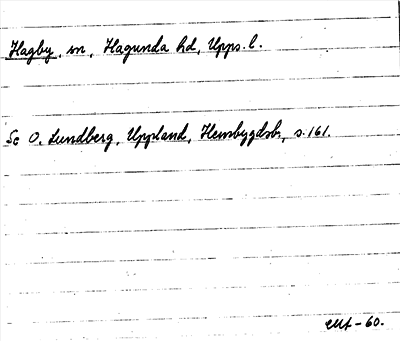 Hagby, sn, Hagunda hd, Upps. l.
Se O. Lundberg, Uppland, Hembygdsb., s. 161.
-60.